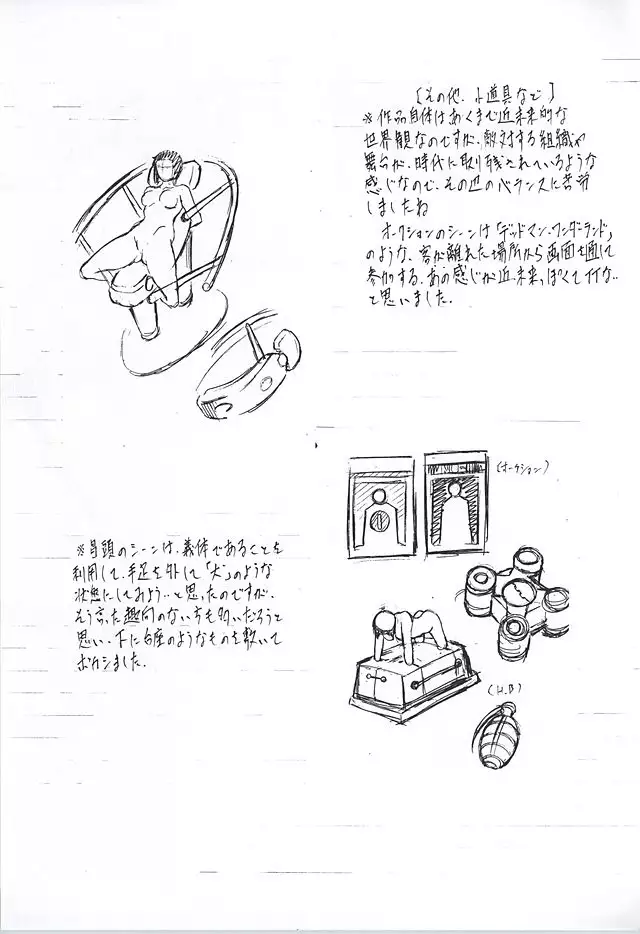 [その他、小道具など]
※作品自体はあくまで近未来的な
世界観なのですが、敵対する組織や
舞台が、時代に取り残されているような
感じなので、その辺のバランスに苦労
しましたね
オークションのシーンは「デッドマン・ワンダーランド」
のような、客が離れた場所から画面を通して
参加する、あの感じが近未来っぽくて
と思いました。
(オークション)
※冒頭のシーンは、義体であることを
利用して、手足を外して「犬」のような
状態にしてみようと思ったのですが、
そう言った趣向のない方も多いだろうと
思い、下に台座のようなものを敷いて
ボカシました。
(H.B)